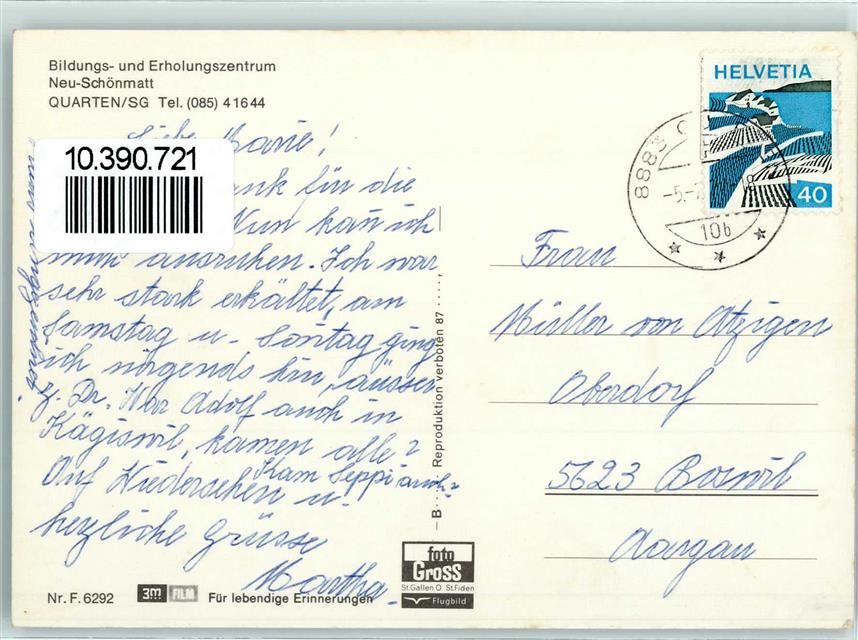 Bildungs- und Erholungszentrum
Neu-Schönmatt
QUARTEN/SG Tel. (085) 4 16 44
10.390.721
Liebe Marie!
für die
Nun kan ich
ausruhen. Ich war
sehr stark erkältet, am
Samstag u. Sontag ging
ich nirgends hin, ausser
z. Dr. War Adolf auch in
Kägiswil, kamen alle?
Kam Seppi auch?
Auf Wiedersehen u.
herzliche Grüsse
Martha
Nr. F. 6292
3M FILM
Für lebendige Erinnerungen
– B
Reproduktion verboten 87
foto
Gross
St.Gallen O St.Fiden
Flugbild
HELVETIA
40
8883
-5.-
10b
Frau
Müller von Atzigen
Oberdorf
5623 Boswil
Aargau